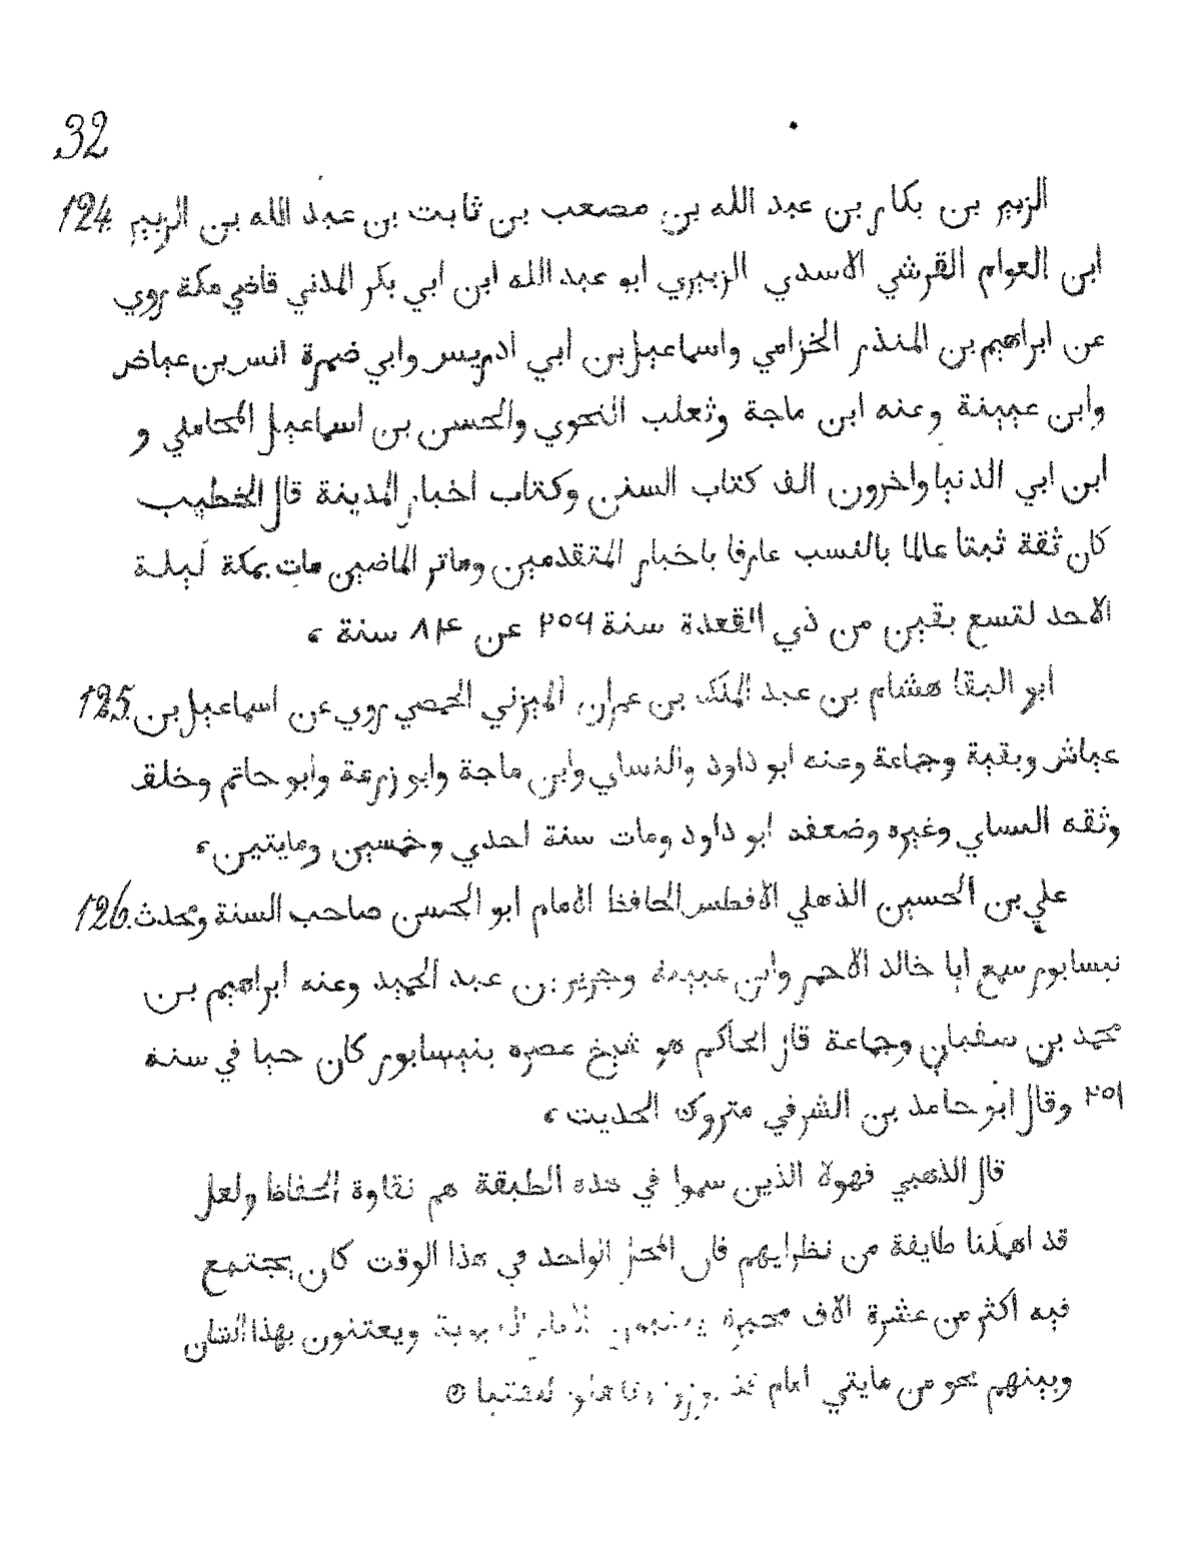 32
124. الزبير بن بكار بن عبد الله بن مصعب بن ثابت بن عبد الله بن الزبير
ابن العوام القرشي الاسدي الزبيري ابو عبد الله ابن ابي بكر المدني قاضي مكة روي
عن ابراهيم بن المنذر الخزامي واسماعيل بن ابي ادريس وابي ضمرة انس بن عياض
وابن عيينة وعنه ابن ماجة وثعلب النحوي والحسن بن اسماعيل المحاملي و
ابن ابي الدنيا واخرون الف كتاب السنن وكتاب اخبار المدينة قال الخطيب
كان ثقة ثبتا عالما بالنسب عارفا باخبار المتقدمين وماثر الماضين مات بمكة ليلة
الاحد لتسع بقين من ذي القعدة سنة ٢٥٦ عن ٨٤ سنة ،
125. ابو البقا هشام بن عبد الملك بن عمران الميزني الحمصي روي عن اسماعيل بن
عياش وبقية وجماعة وعنه ابو داود والنساي وابن ماجة وابو زرعة وابو حاتم وخلق
وثقه النساي وغيره وضعفه ابو داود ومات سنة احدي وخمسين ومايتين ،
126. علي بن الحسين الذهلي الافطس الحافظ الامام ابو الحسن صاحب السنة ومحدث
نيسابور سمع ابا خالد الاحمر وابن عيينة وجرير بن عبد الحميد وعنه ابراهيم بن
محمد بن سفيان وجماعة قال الحاكم هو شيخ عصره بنيسابور كان حيا في سنة
٢٥١ وقال ابو حامد بن الشرفي متروك الحديث ،
قال الذهبي فهولا الذين سموا في هذه الطبقة هم نقاوة الحفاظ ولعل
قد اهملنا طايفة من نظرايهم فان المجلس الواحد في هذا الوقت كان يجتمع
فيه اكثر من عشرة الاف محبرة ويعتنون بهذا الشان
وبينهم نحو من مايتي امام